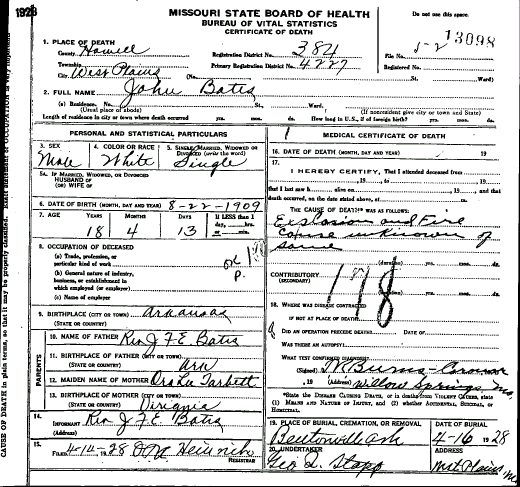 1928
MISSOURI STATE BOARD OF HEALTH
BUREAU OF VITAL STATISTICS
CERTIFICATE OF DEATH
Do not use this space.
13098
1. PLACE OF DEATH
County Howell
Registration District No. 384
File No.
Township
Primary Registration District No. 4227
Registered No.
City West Plains (No. St. Ward)
2. FULL NAME John Batis
(a) Residence. No. St., Ward.
(Usual place of abode) (If nonresident give city or town and State)
Length of residence in city or town where death occurred yrs. mos. ds. How long in U. S., if of foreign birth? yrs. mos. ds.
PERSONAL AND STATISTICAL PARTICULARS
3. SEX 4. COLOR OR RACE 5. SINGLE, MARRIED, WIDOWED OR DIVORCED (write the word)
Male White Single
5A. IF MARRIED, WIDOWED, OR DIVORCED
HUSBAND OF
(OR) WIFE OF
6. DATE OF BIRTH (MONTH, DAY AND YEAR) 8-22-1909
7. AGE YEARS MONTHS DAYS If LESS than 1 day, hrs. or min.
18 4 13
8. OCCUPATION OF DECEASED
(a) Trade, profession, or
particular kind of work
(b) General nature of industry,
business, or establishment in
which employed (or employer)
(c) Name of employer
9. BIRTHPLACE (CITY OR TOWN) Arkansas
(STATE OR COUNTRY)
PARENTS
10. NAME OF FATHER Rev J F E Batis
11. BIRTHPLACE OF FATHER (CITY OR TOWN)
(STATE OR COUNTRY) Ark
12. MAIDEN NAME OF MOTHER Ora Lee Tarbett
13. BIRTHPLACE OF MOTHER (CITY OR TOWN)
(STATE OR COUNTRY) Virginia
14. INFORMANT Rev J F E Batis
(Address)
15. FILED 4-14-1928
REGISTRAR
MEDICAL CERTIFICATE OF DEATH
16. DATE OF DEATH (MONTH, DAY AND YEAR) 19
17.
I HEREBY CERTIFY, That I attended deceased from
, 19 , to , 19
that I last saw h alive on , 19 , and that
death occurred, on the date stated above, at m.
THE CAUSE OF DEATH* WAS AS FOLLOWS:
Explosion and Fire
Cause unknown of
same
(duration) yrs. mos. ds.
CONTRIBUTORY
(SECONDARY)
178
(duration) yrs. mos. ds.
18. WHERE WAS DISEASE CONTRACTED
IF NOT AT PLACE OF DEATH?
DID AN OPERATION PRECEDE DEATH? DATE OF
WAS THERE AN AUTOPSY?
WHAT TEST CONFIRMED DIAGNOSIS?
(Signed) Burns - Coroner
, 19 (Address) Willow Springs, Mo.
*State the DISEASE CAUSING DEATH, or in deaths from VIOLENT CAUSES, state
(1) MEANS AND NATURE OF INJURY, and (2) whether ACCIDENTAL, SUICIDAL, or
HOMICIDAL.
19. PLACE OF BURIAL, CREMATION, OR REMOVAL DATE OF BURIAL
Bentonville Ark 4-16 1928
20. UNDERTAKER ADDRESS
Geo. D. Stapp West Plains Mo
CAUSE OF DEATH in plain terms, so that it may be properly classified.